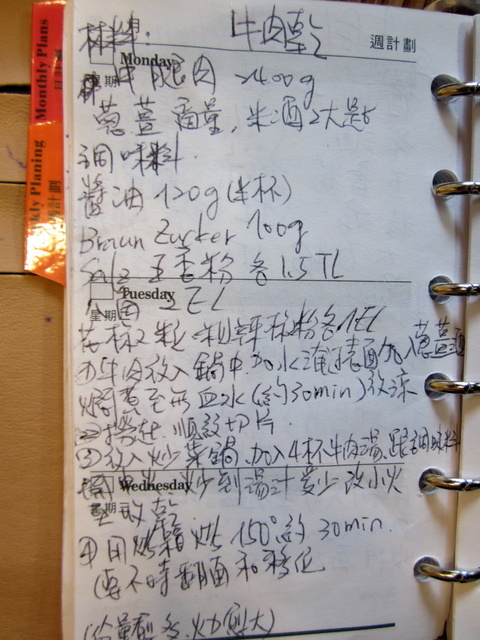 Monthly Plans
月計劃
Weekly Planning
週計劃
材料: 牛肉乾
Monday
星期一
牛腿肉 2400g
蔥薑適量,米酒2大匙
調味料
醬油 120g (半杯)
Braun Zucker 100g
Salz 五香粉 各 1.5 TL
Tuesday
星期二
2 EL
花椒粒 辣椒粉各1EL
①牛肉放入鍋中加水淹過面加入蔥薑酒
燜煮至無血水(約30min)放涼
②撈起 順紋切片
③放入炒菜鍋,加入4杯牛肉湯,跟調味料
Wednesday
星期三
炒到湯汁變少 改小火
收乾
④用烤箱烘 150° 約 30min.
(要不時翻面和移位